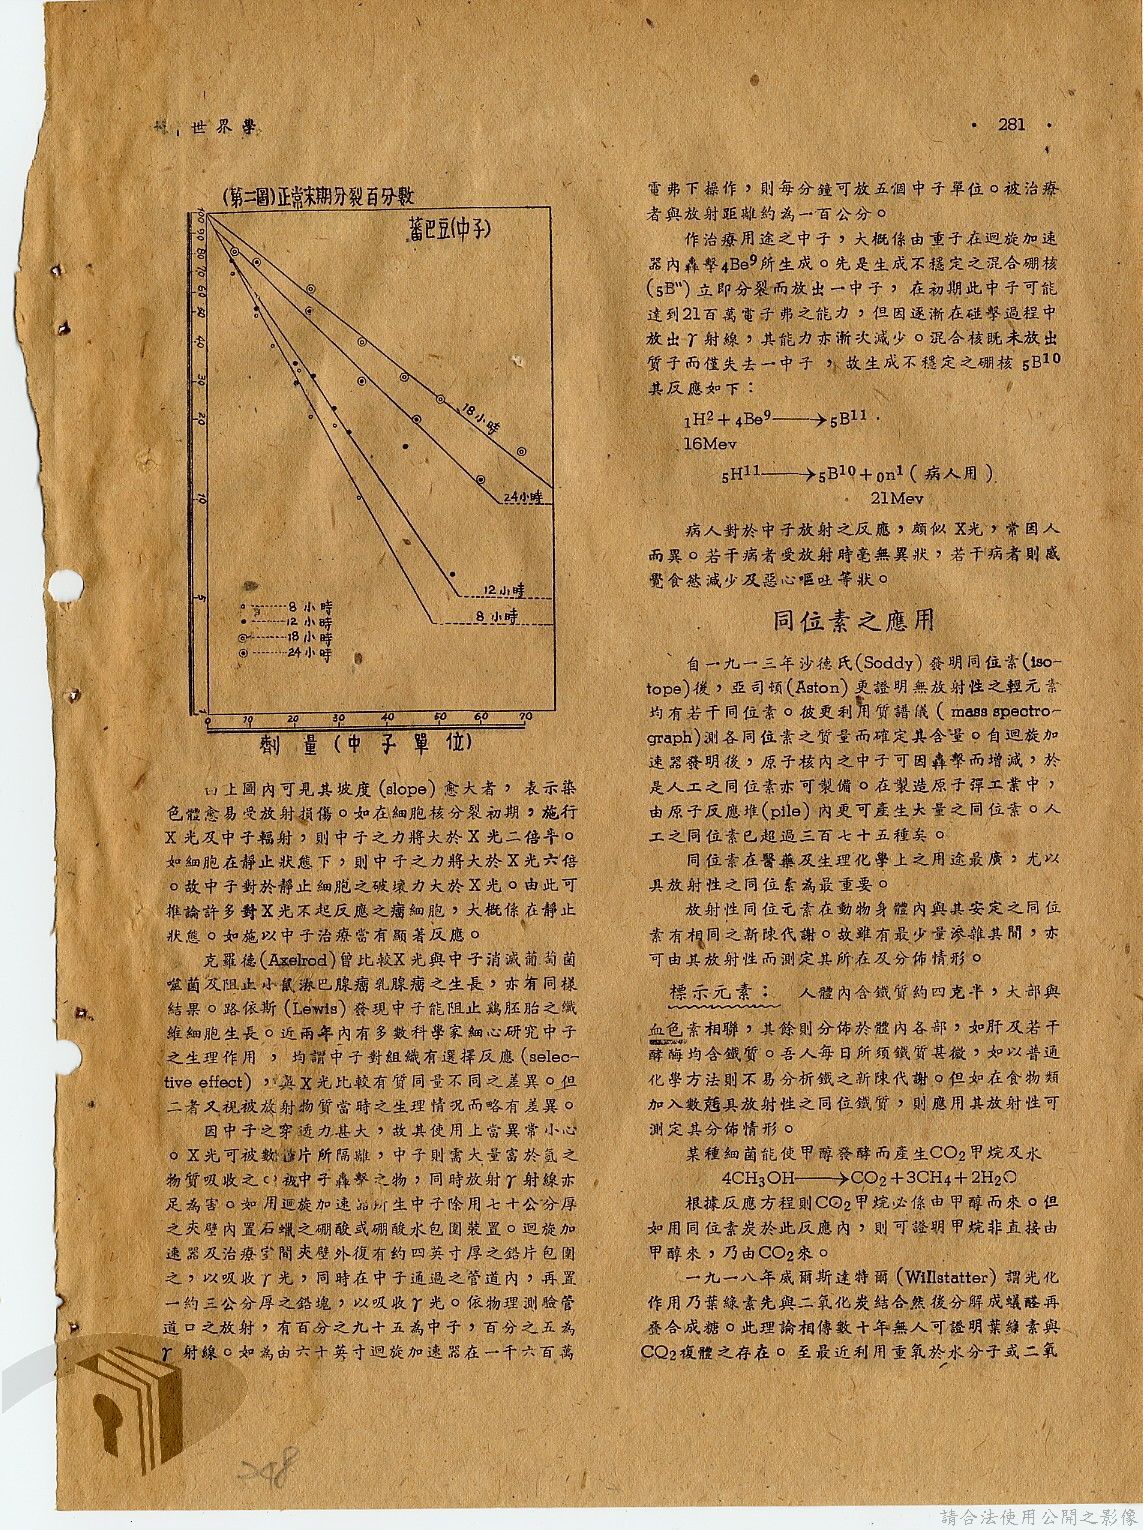 世界學
· 281 ·
(第二圖)正常末期分裂百分數
蕃巴豆(中子)
100
90
80
70
60
50
40
30
20
10
5
1
18小時
24小時
12小時
8小時
8小時
12小時
18小時
24小時
0 10 20 30 40 50 60 70
劑量(中子單位)
上圖內可見其坡度(slope)愈大者,表示染
色體愈易受放射損傷。如在細胞核分裂初期,施行
X光及中子輻射,則中子之力將大於X光二倍半。
如細胞在靜止狀態下,則中子之力將大於X光六倍
。故中子對於靜止細胞之破壞力大於X光。由此可
推論許多對X光不起反應之瘤細胞,大概係在靜止
狀態。如施以中子治療當有顯著反應。
克羅德(Axelrod)曾比較X光與中子消滅葡萄菌
噬菌及阻止小鼠淋巴腺瘤乳腺瘤之生長,亦有同樣
結果。路依斯(Lewis)發現中子能阻止鷄胚胎之纖
維細胞生長。近兩年內有多數科學家細心研究中子
之生理作用,均謂中子對組織有選擇反應(selec-
tive effect),與X光比較有質同量不同之差異。但
二者又視被放射物質當時之生理情況而略有差異。
因中子之穿透力甚大,故其使用上當異常小心
。X光可被數片所隔離,中子則需大量富於氫之
物質吸收之。被中子轟擊之物,同時放射γ射線亦
足為害。如用迴旋加速器所生中子除用七十公分厚
之夾壁內置石蠟之硼酸或硼酸水包圍裝置。迴旋加
速器及治療室間夾壁外復有約四英寸厚之鉛片包圍
之,以吸收γ光,同時在中子通過之管道內,再置
一約三公分厚之鉛塊,以吸收γ光。依物理測驗管
道口之放射,有百分之九十五為中子,百分之五為
γ射線。如為由六十英寸迴旋加速器在一千六百萬
電弗下操作,則每分鐘可放五個中子單位。被治療
者與放射距離約為一百公分。
作治療用途之中子,大概係由重子在迴旋加速
器內轟擊₄Be⁹所生成。先是生成不穩定之混合硼核
(₅B¹¹)立即分裂而放出一中子,在初期此中子可能
達到21百萬電子弗之能力,但因逐漸在碰擊過程中
放出γ射線,其能力亦漸次減少。混合核既未放出
質子而僅失去一中子,故生成不穩定之硼核₅B¹⁰
其反應如下:
₁H²+₄Be⁹⟶₅B¹¹
16Mev
₅H¹¹⟶₅B¹⁰+₀n¹(病人用)
21Mev
病人對於中子放射之反應,頗似X光,常因人
而異。若干病者受放射時毫無異狀,若干病者則感
覺食慾減少及惡心嘔吐等狀。
同位素之應用
自一九一三年沙德氏(Soddy)發明同位素(iso-
tope)後,亞司頓(Aston)更證明無放射性之輕元素
均有若干同位素。彼更利用質譜儀(mass spectro-
graph)測各同位素之質量而確定其含量。自迴旋加
速器發明後,原子核內之中子可因轟擊而增減,於
是人工之同位素亦可製備。在製造原子彈工業中,
由原子反應堆(pile)內更可產生大量之同位素。人
工之同位素已超過三百七十五種矣。
同位素在醫藥及生理化學上之用途最廣,尤以
具放射性之同位素為最重要。
放射性同位元素在動物身體內與其安定之同位
素有相同之新陳代謝。故雖有最少量滲雜其間,亦
可由其放射性而測定其所在及分佈情形。
標示元素: 人體內含鐵質約四克半,大部與
血色素相聯,其餘則分佈於體內各部,如肝及若干
酵酶均含鐵質。吾人每日所須鐵質甚微,如以普通
化學方法則不易分析鐵之新陳代謝。但如在食物類
加入數兙具放射性之同位鐵質,則應用其放射性可
測定其分佈情形。
某種細菌能使甲醇發酵而產生CO₂甲烷及水
4CH₃OH⟶CO₂+3CH₄+2H₂O
根據反應方程則CO₂甲烷必係由甲醇而來。但
如用同位素炭於此反應內,則可證明甲烷非直接由
甲醇來,乃由CO₂來。
一九一八年威爾斯達特爾(Willstatter)謂光化
作用乃葉綠素先與二氧化炭結合然後分解成蟻醛再
叠合成糖。此理論相傳數十年無人可證明葉綠素與
CO₂複體之存在。至最近利用重氧於水分子或二氧
248
請合法使用公開之影像